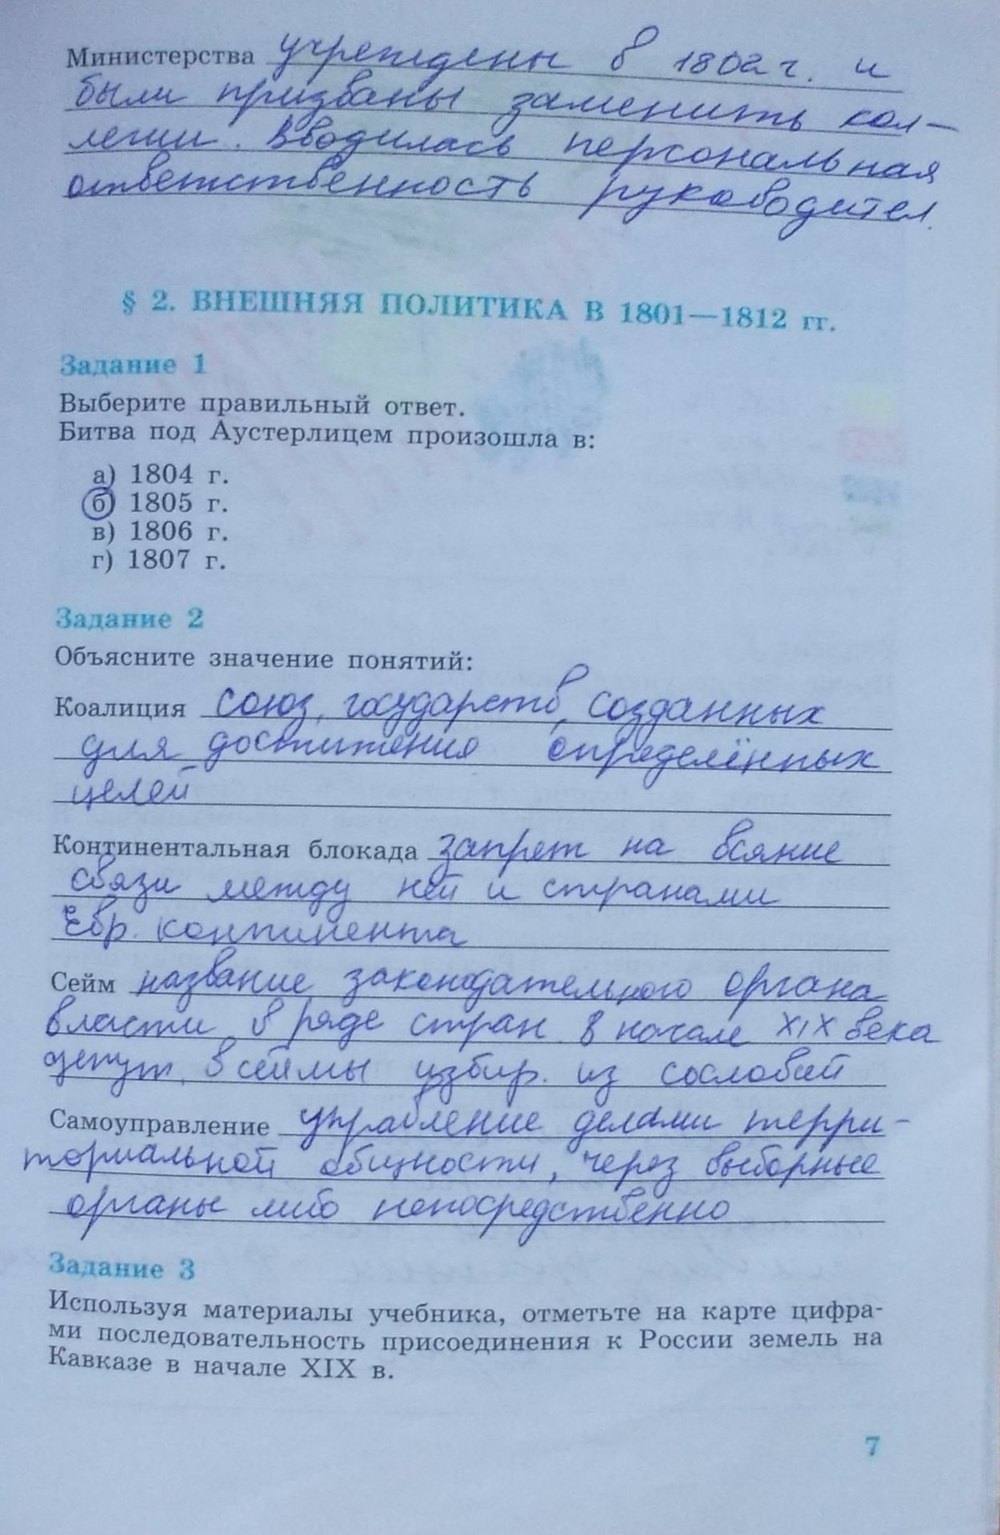 Министерства учреждены в 1802 г. и
были призваны заменить кол-
легии. Вводилась персональная
ответственность руководител.
§ 2. ВНЕШНЯЯ ПОЛИТИКА В 1801—1812 гг.
Задание 1
Выберите правильный ответ.
Битва под Аустерлицем произошла в:
а) 1804 г.
б) 1805 г.
в) 1806 г.
г) 1807 г.
Задание 2
Объясните значение понятий:
Коалиция союз, государств, созданных
для достижения определённых
целей
Континентальная блокада запрет на всякие
связи между ней и странами
Евр. континента
Сейм название законодательного органа
власти в ряде стран в начале XIX века
депут. в сеймы избир. из сословий
Самоуправление управление делами терри-
ториальной общности, через выборные
органы либо непосредственно
Задание 3
Используя материалы учебника, отметьте на карте цифра-
ми последовательность присоединения к России земель на
Кавказе в начале XIX в.
7